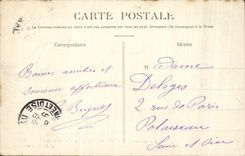 CARTE POSTALE
La Correspondance au recto n'est pas acceptée par tous les pays étrangers (Se renseigner à la Poste)
Correspondance
Adresse
Bonnes amitiés et
souvenir affectueux
Madame
Deloges
2 rue de Paris
Palaiseau
Seine et Oise